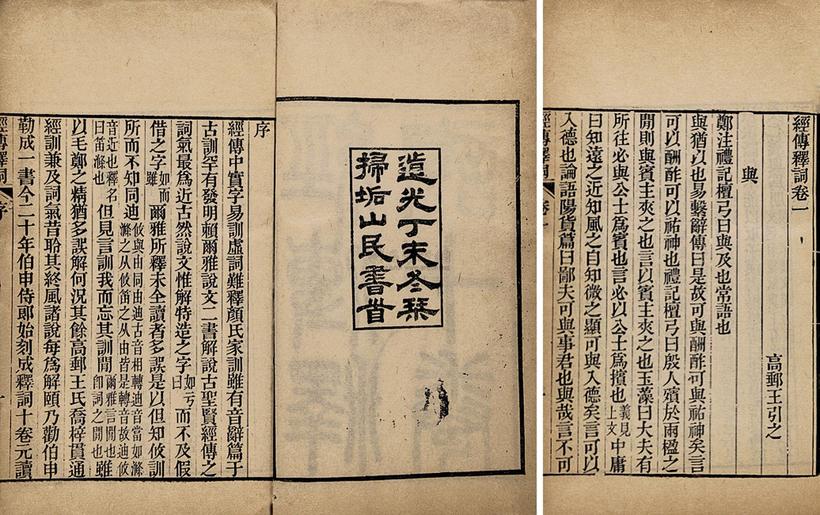 道光丁未冬栞
掃垢山民書首
序
經傳中實字易訓虛詞難釋顏氏家訓雖有音辭篇于
古訓罕有發明賴爾雅說文二書解說古聖賢經傳之
詞氣最爲近古然說文惟解特造之字如亏曰而不及假
借之字如而雖爾雅所釋未全讀者多誤是以但知攸訓
所而不知同迪攸與由同由迪古音相轉迪音當如滌滌之从攸笛之从由皆是轉音故迪攸
音近也釋名曰笛滌也但見言訓我而忘其訓閒爾雅言閒也卽詞之閒也雖
以毛鄭之精猶多誤解何況其餘高郵王氏喬梓貫通
經訓兼及詞氣昔聆其終風諸說每爲解頤乃勸伯申
勒成一書今二十年伯申侍郎始刻成釋詞十卷元讀
經傳釋詞 序
經傳釋詞卷一
高郵王引之
與
鄭注禮記檀弓曰與及也常語也
與猶以也易繫辭傳曰是故可與酬酢可與祐神矣言
可以酬酢可以祐神也禮記檀弓曰殷人殯於兩楹之
閒則與賓主夾之也言以賓主夾之也玉藻曰大夫有
所往必與公士爲賓也言必以公士爲擯也義見上文中庸
曰知遠之近知風之自知微之顯可與入德矣言可以
入德也論語陽貨篇曰鄙夫可與事君也與哉言不可
經傳釋詞 卷一